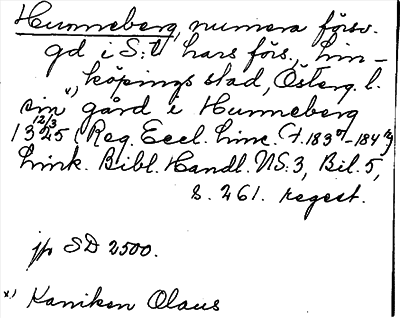 Hunneberg, numera försv.
gd i S:t Lars förs., Lin-
köpings stad, Österg. l.
x) sin gård i Hunneberg
1325 12/3 (Reg. Eccl. Linc. (f. 183v-184r)
Link. Bibl. Handl. NS:3, Bil. 5,
s. 261. regest.
jfr SD 2500.
x) Kaniken Olaus